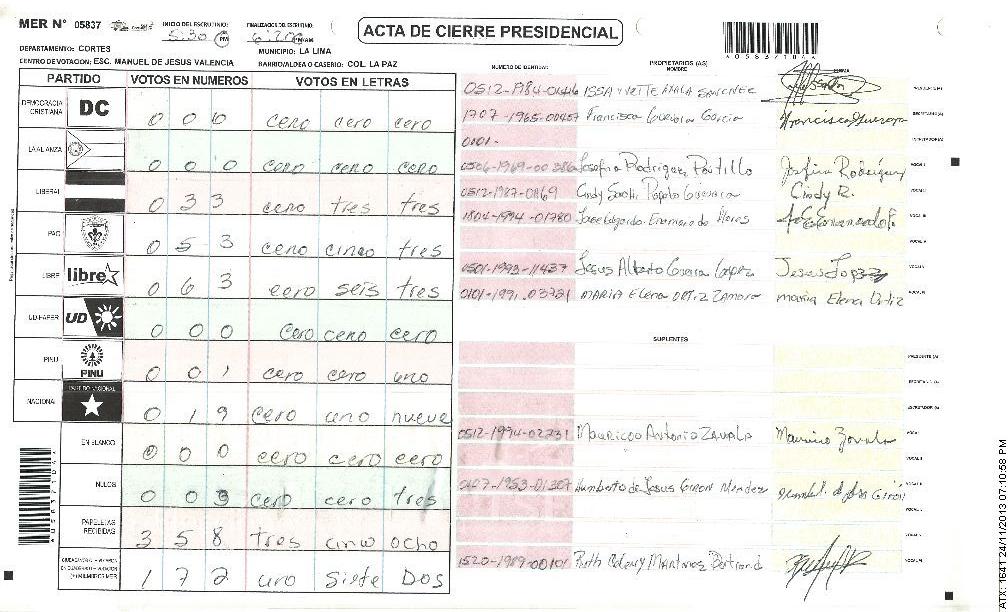 MER N° 05837 INICIO DEL ESCRUTINIO: 5:30 PM FINALIZACION DEL ESCRUTINIO: PM/AM
ACTA DE CIERRE PRESIDENCIAL
A05837104
DEPARTAMENTO: CORTES MUNICIPIO: LA LIMA
CENTRO DE VOTACION: ESC. MANUEL DE JESUS VALENCIA BARRIO/ALDEA O CASERIO: COL. LA PAZ
PARTIDO VOTOS EN NUMEROS VOTOS EN LETRAS
DEMOCRACIA CRISTIANA DC 0 0 0 cero cero cero
LA ALIANZA 0 0 0 cero cero cero
LIBERAL 0 3 3 cero tres tres
PAC 0 5 3 cero cinco tres
LIBRE libre 0 6 3 cero seis tres
UD-FAPER UD 0 0 0 cero cero cero
PINU PINU 0 0 1 cero cero uno
NACIONAL PARTIDO NACIONAL 0 1 9 cero uno nueve
EN BLANCO 0 0 0 cero cero cero
NULOS 0 0 3 cero cero tres
PAPELETAS RECIBIDAS 3 5 8 tres cinco ocho
1 7 2 uno siete Dos
NUMERO DE IDENTIDAD PROPIETARIOS (AS) NOMBRE FIRMA
0512-1984-0146 ISSA YVETTE AYALA SANCHEZ PRESIDENTE (A)
1707-1965-00457 Francisca Guevara Garcia Francisca Guevara SECRETARIO (A)
0101- ESCRUTADOR (A)
0506-1969-00386 Josefina Rodriguez Portillo Josfina Rodriguez VOCAL I
0512-1987-0169 Cindy Cindy R. VOCAL II
1804-1994-01780 Jose Edgardo Enamorado Flores VOCAL III
VOCAL IV
0501-1993-11437 Jesus Alberto Guerra Lopez Jesus Lopez VOCAL V
0101-1991-03721 MARIA Elena ORTIZ Zamora maria Elena Ortiz VOCAL VI
SUPLENTES
PRESIDENTE (A)
SECRETARIO (A)
ESCRUTADOR (A)
0512-1994-02731 Mauricio Antonio ZAVALA Mauricio Zavala VOCAL I
VOCAL II
0107-1953-01307 Humberto de Jesus GIRON Mendez VOCAL III
VOCAL IV
VOCAL V
1520-1989-00101 Ruth Martinez Bertrand VOCAL VI
AU5837104
ATX: 1641 24/11/2013 07:10:58 PM